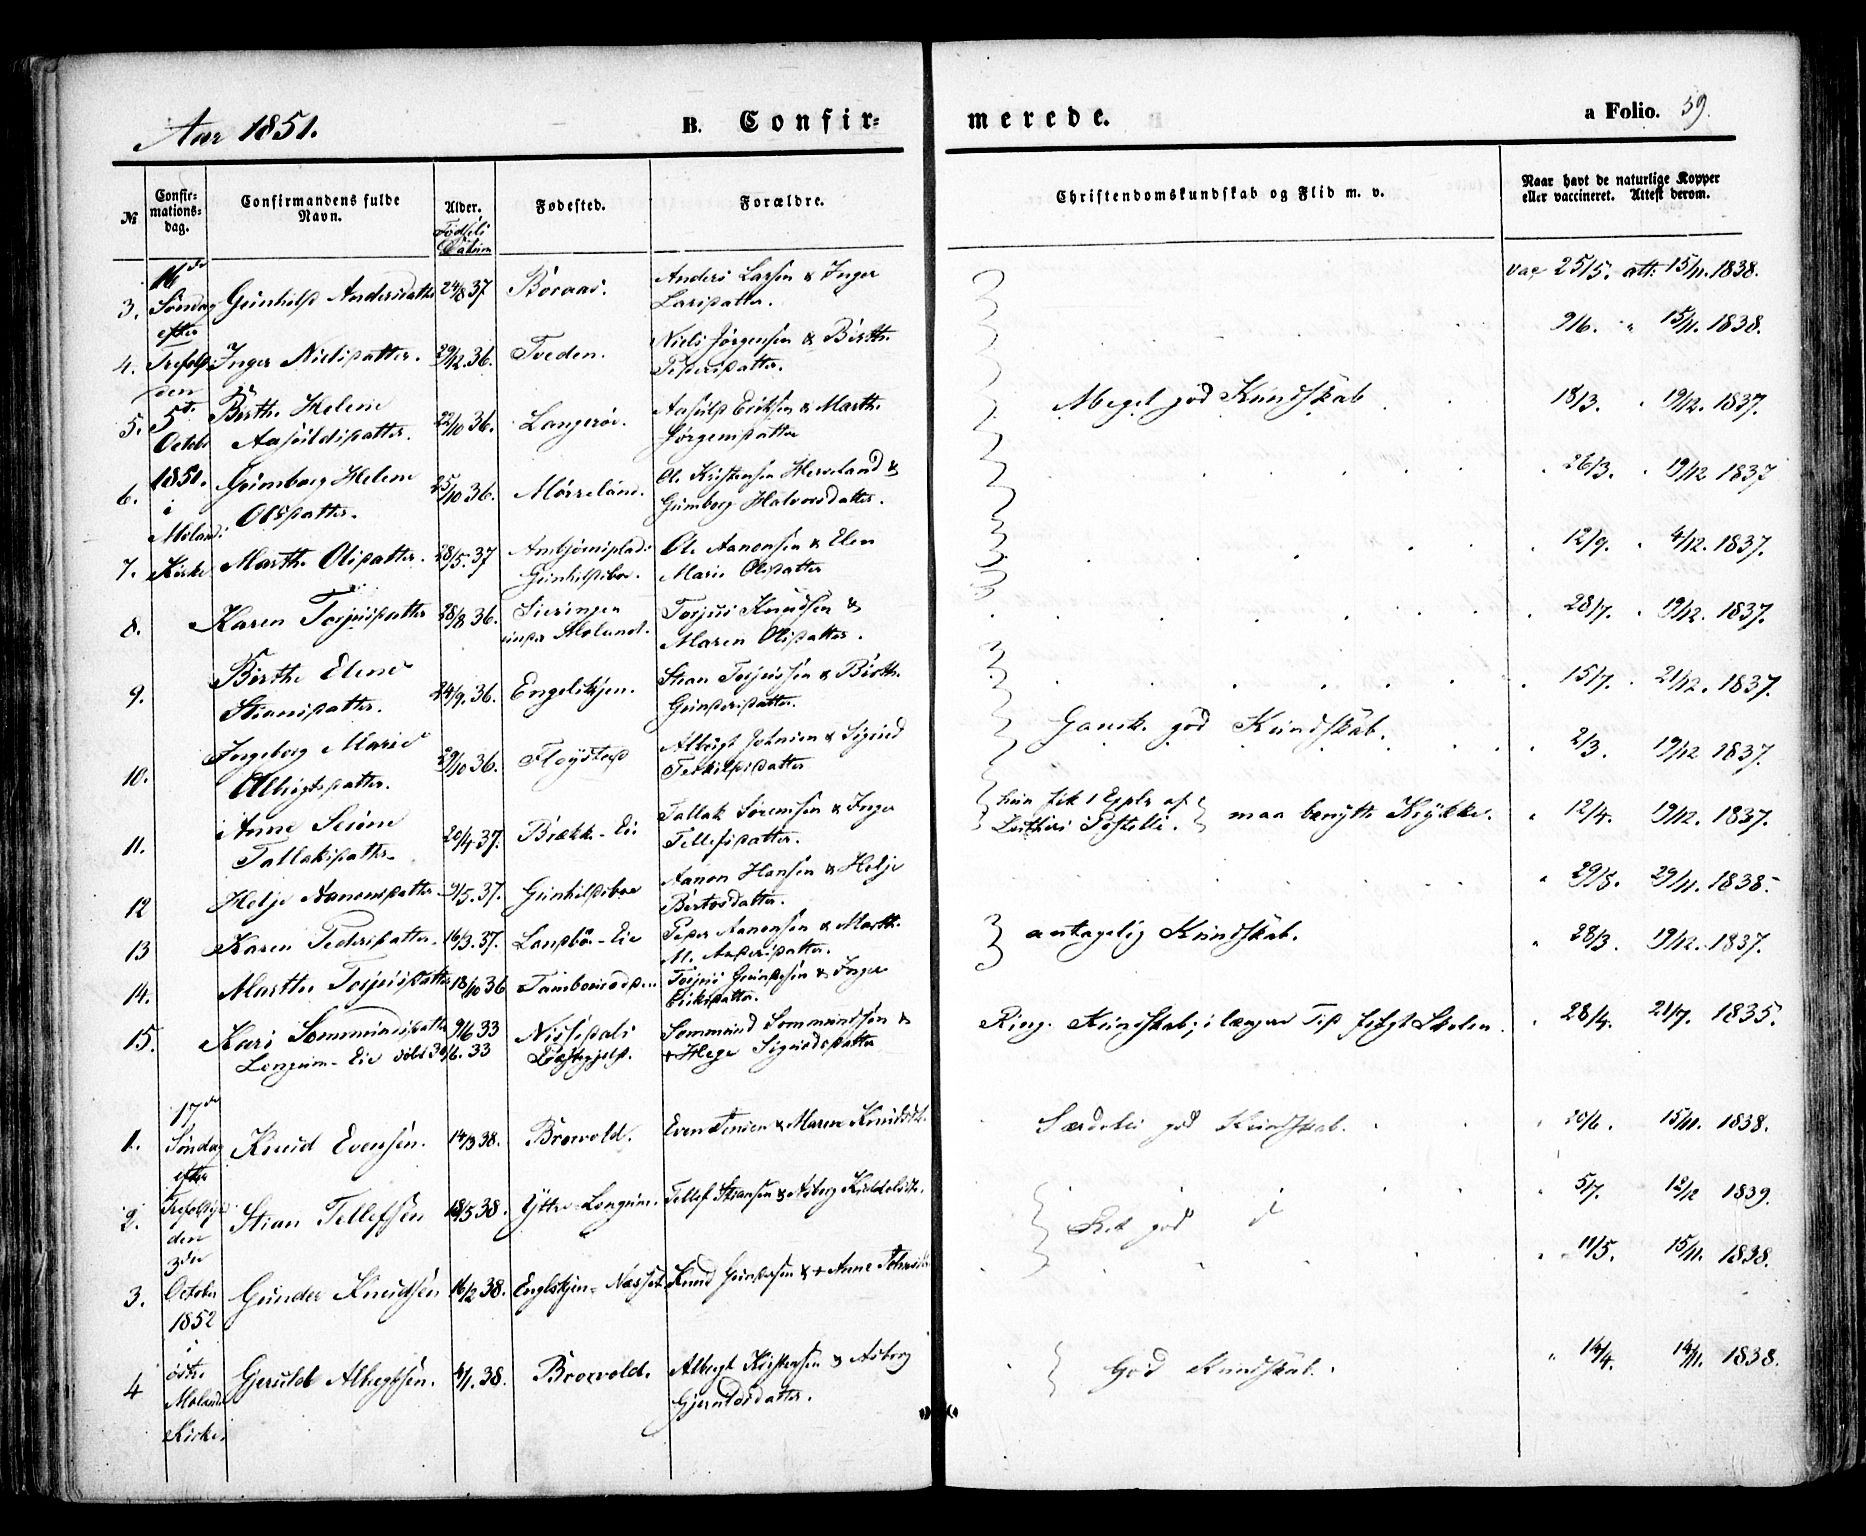 Aar 1851. B. Confir= merede. a Folio. 59.
№ Confir=mations=dag. Confirmandens fulde Navn. Alder. Fødsels Datum Fødested. Forældre. Christendomskundskab og Flid m. v. Naar havt de naturlige Kopper eller vaccineret. Attest derom.
16de Søndag efter Trefoldigh den 5te Octobr 1851. i Molands Kirke
3. Gunhild Andersdatter 24/8 37 Boraas. Anders Larsen & Inger Larsdatter. vac 25/5. att: 15/11. 1838.
4. Inger Nielsdatter. 29/12. 36. Tveden. Niels Jørgensen & Birthe Pedersdatter. 9/6. " 15/11. 1838.
5. Birthe Helene Aasuldsdatter. 22/10 36. Langerør. Aasuld Eriksen & Marthe Jørgensdatter Meget god Kundskab 18/3. " 19/12. 1837.
6. Gumborg Helene Olsdatter. 25/10 36. Mørreland. Ole Kristensen & Gumborg Halvorsdatter. " 26/3. " 19/12 1837
7. Marthe Olsdatter. 28/5. 37 Gunhildsboe. Ole Aanonsen & Elen Marie Olsdatter " 12/9. " 4/12. 1837.
8. Karen Torjusdatter 28/8 36. under Moland. Torjus Knudsen & Maren Olsdatter. 28/7. " 19/12. 1837.
9. Birthe Elene Stiansdatter. 24/9. 36. Engelskjen. Stian Torjussen & Birthe Gundersdatter. " 15/7. " 21/12. 1837.
10. Ingeborg Marie Albrigtsdatter. 29/10 36. Fløystad Albrigt Johnsen & Sigrid Terkildsdatter Gansk. god Kundskab. " 2/3. 19/12 1837.
11. Anne Serine Tallaksdatter 20/4 37. Brække-Eie Tallak Sørensen & Inger Tellefsdatter. hun fik 1 Expl af Luthers Postille. maa benytte Krykke. " 12/4. 19/12. 1837.
12 Helje Aanonsdatter 9/5. 37. Gunhildsboe Aanon Hansen & Helje Bertosdatter. " 29/8. 29/11. 1838.
13 Karen Pedersdatter. 16/3. 37. Landbø-Eie Peder Aanonsen & Marthe M. Andersdatter. antagelig Kundskab. " 28/3. 19/12. 1837.
14. Marthe Torjusdatter 18/10 36 Torjus Gundersen & Inger Eriksdatter.
15. Kari Sommundsdatter 9/6 33 Longum-Eie døbt 30/6. 33 Sommund Sommundsen & + Hege Sigurdsdatter Ring. Kundskab; i længere Tid søgt Skolen. " 28/4. 21/7. 1835.
17de Søndag efter Trefoldigh den 3die October 1852 i østre Molands Kirke
1. Knud Evensen. 14/3 38. Brovold. Even Jensen & Maren Knudsdtr. Særdeles god Kundskab. " 20/6. 15/11. 1838.
2. Stian Tellefsen 18/5 38. Yttre-Longum. Tellef Stiansen & Asborg Kiddelsdtr. Ret god d " 5/7. 12/12 1839.
3. Gunder Knudsen 16/2 38. Englskjen-Næsset Knud Gundersen & + Anne " 11/5. 15/11. 1838.
4 Gjeruld Albregtsen. 4/1. 38. Brovold. Albregt Kristensen & Asborg Gjeruldsdatter. God Kundskab. " 14/4. 14/11. 1838.